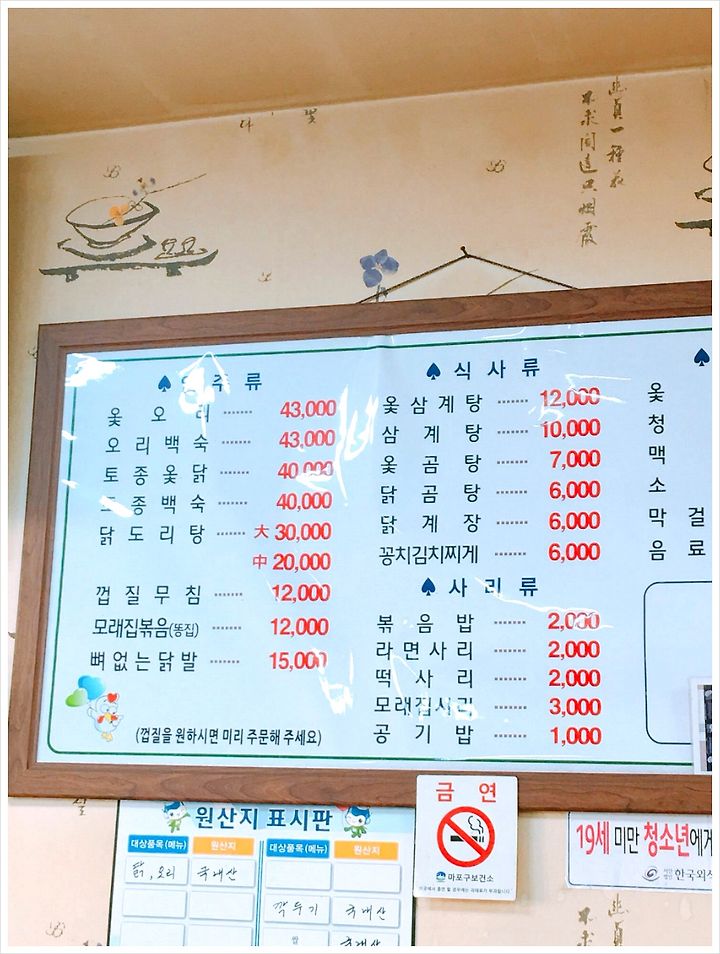 幽貞一種花
不求聞達只烟霞
♠ 안 주 류
옻 오 리 ······· 43,000
오 리 백 숙 ······· 43,000
토 종 옻 닭 ······· 40,000
토 종 백 숙 ······· 40,000
닭 도 리 탕 ······· 大 30,000
中 20,000
껍 질 무 침 ······· 12,000
모래집볶음(똥집) ······· 12,000
뼈 없 는 닭 발 ······· 15,000
(껍질을 원하시면 미리 주문해 주세요)
♠ 식 사 류
옻 삼 계 탕 ······· 12,000
삼 계 탕 ······· 10,000
옻 곰 탕 ······· 7,000
닭 곰 탕 ······· 6,000
닭 계 장 ······· 6,000
꽁치김치찌게 ······· 6,000
♠ 사 리 류
볶 음 밥 ······· 2,000
라 면 사 리 ······· 2,000
떡 사 리 ······· 2,000
모래집사리 ······· 3,000
공 기 밥 ······· 1,000
♠
옻
청
맥
소
막 걸
음 료
원산지 표시판
대상품목(메뉴) 원산지 대상품목(메뉴) 원산지
닭,오리 국내산
깍두기 국내산
쌀 국내산
금 연
마포구보건소
19세 미만 청소년에게
한국외식